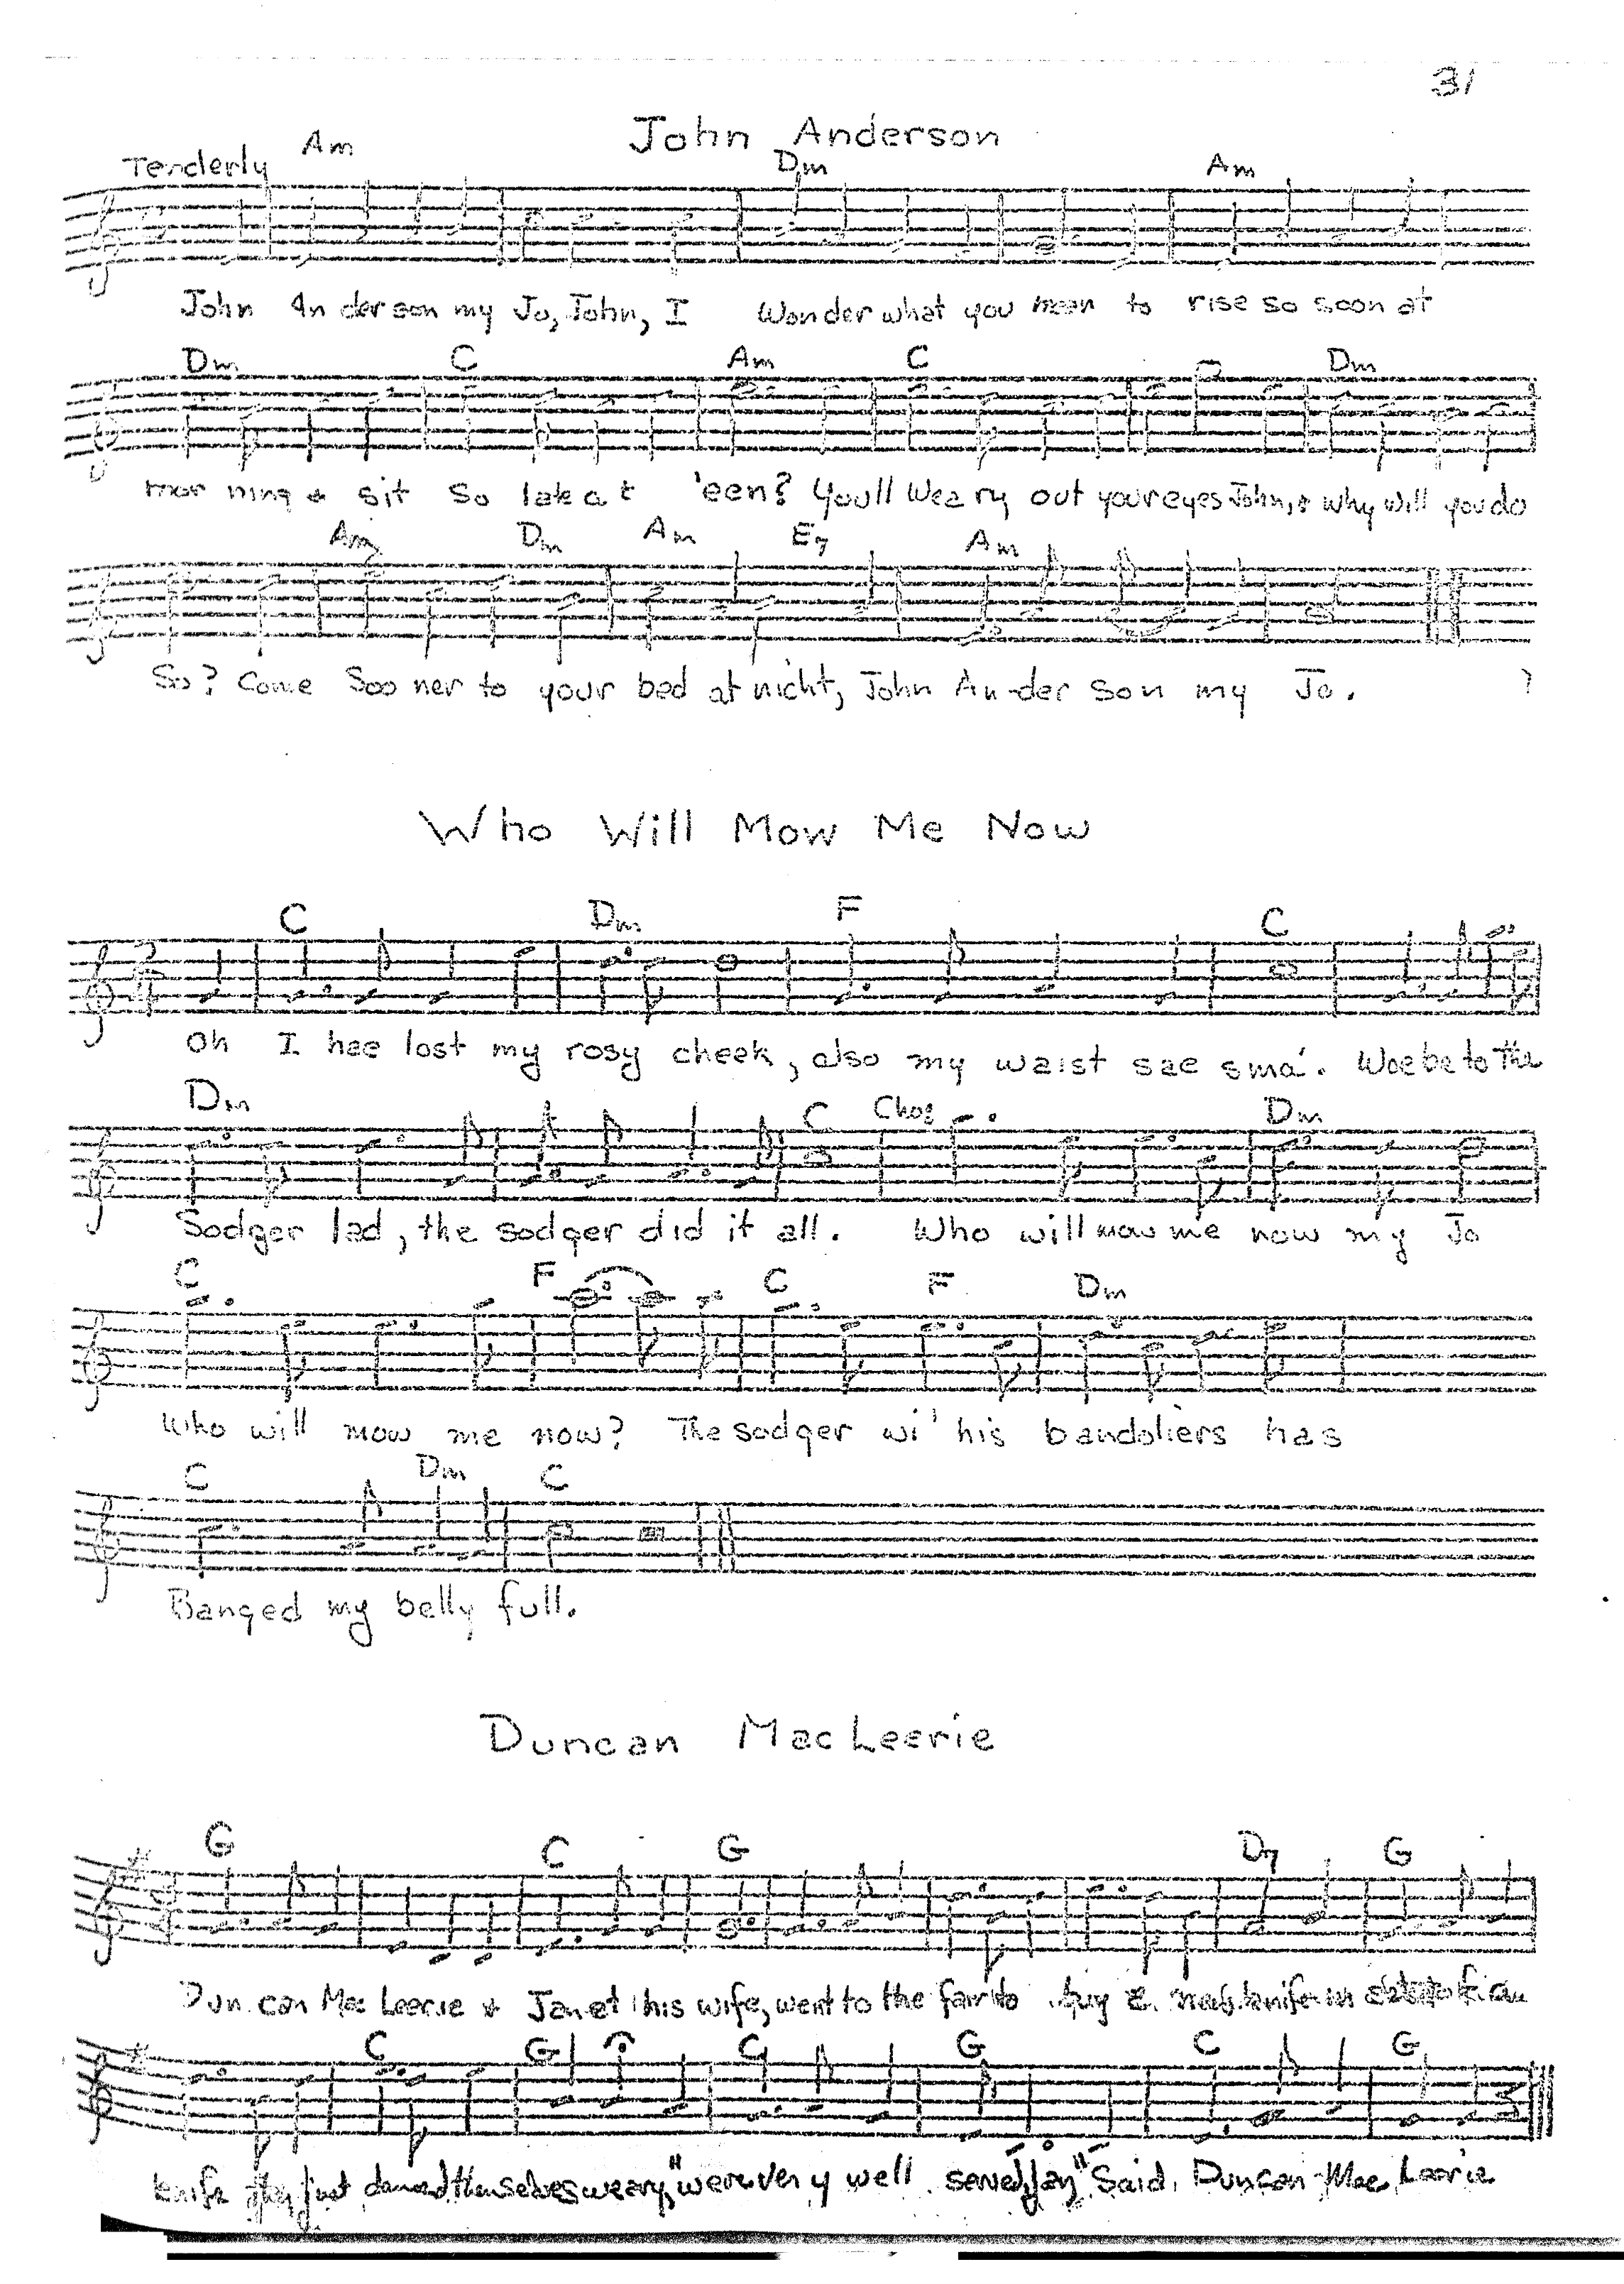 31
John Anderson
Tenderly Am Dm Am
John An der son my Jo, John, I Wonder what you mean to rise so soon at
Dm C Am C Dm
mor ning & sit so late at 'een? You'll Wea ry out your eyes John, & why will you do
Am Dm Am E7 Am
So? Come Soo ner to your bed at nicht, John An-der son my Jo.
Who Will Mow Me Now
C Dm F C
Oh I hae lost my rosy cheek, also my waist sae sma'. Woe be to The
Dm C Chos Dm
Sodger lad, the sodger did it all. Who will mow me now my Jo
C F C F Dm
Who will mow me now? The sodger wi' his bandoliers has
C Dm C
Banged my belly full.
Duncan MacLeerie
G C G D7 G
Dun can Mac Leerie & Janet his wife, went to the fair to buy a knife
C G C G C G
knife they just danced themselves weary, "were very well served, Jan" Said Duncan Mac Leerie